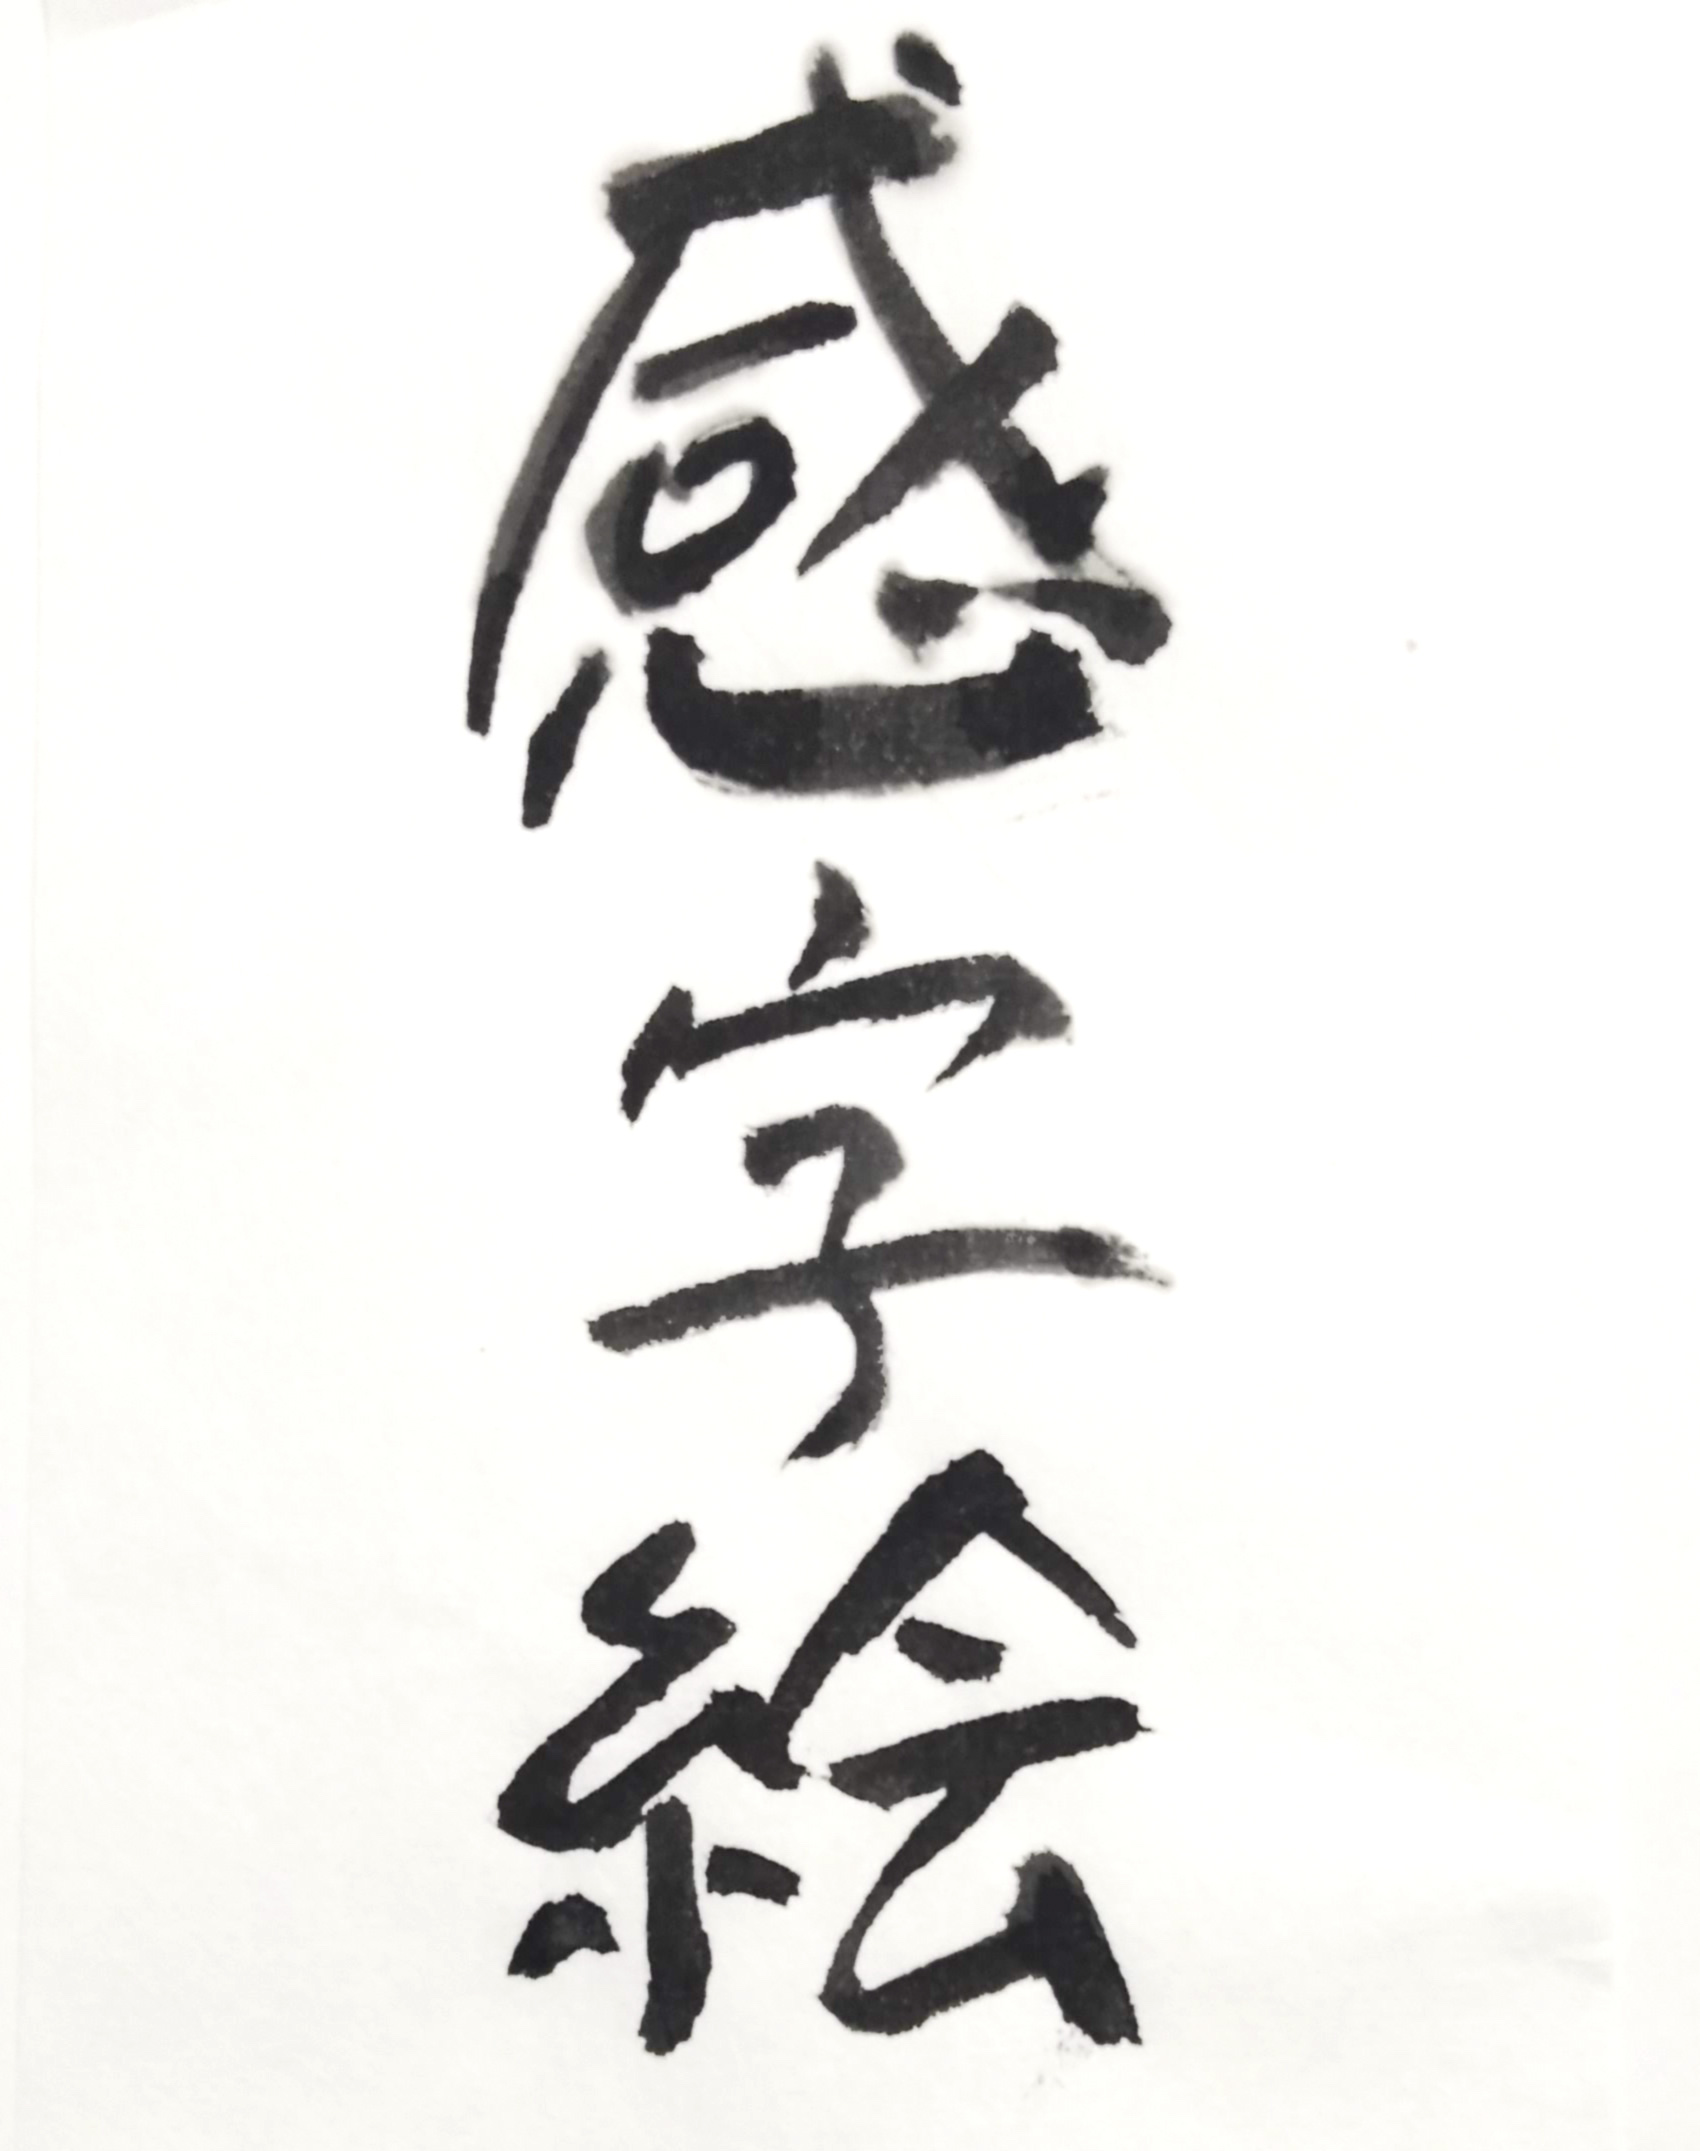 感字絵